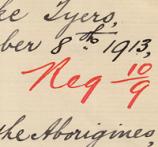 he Tyers,
ber 8th 1913,
Reg 10/9
the Aborigines,